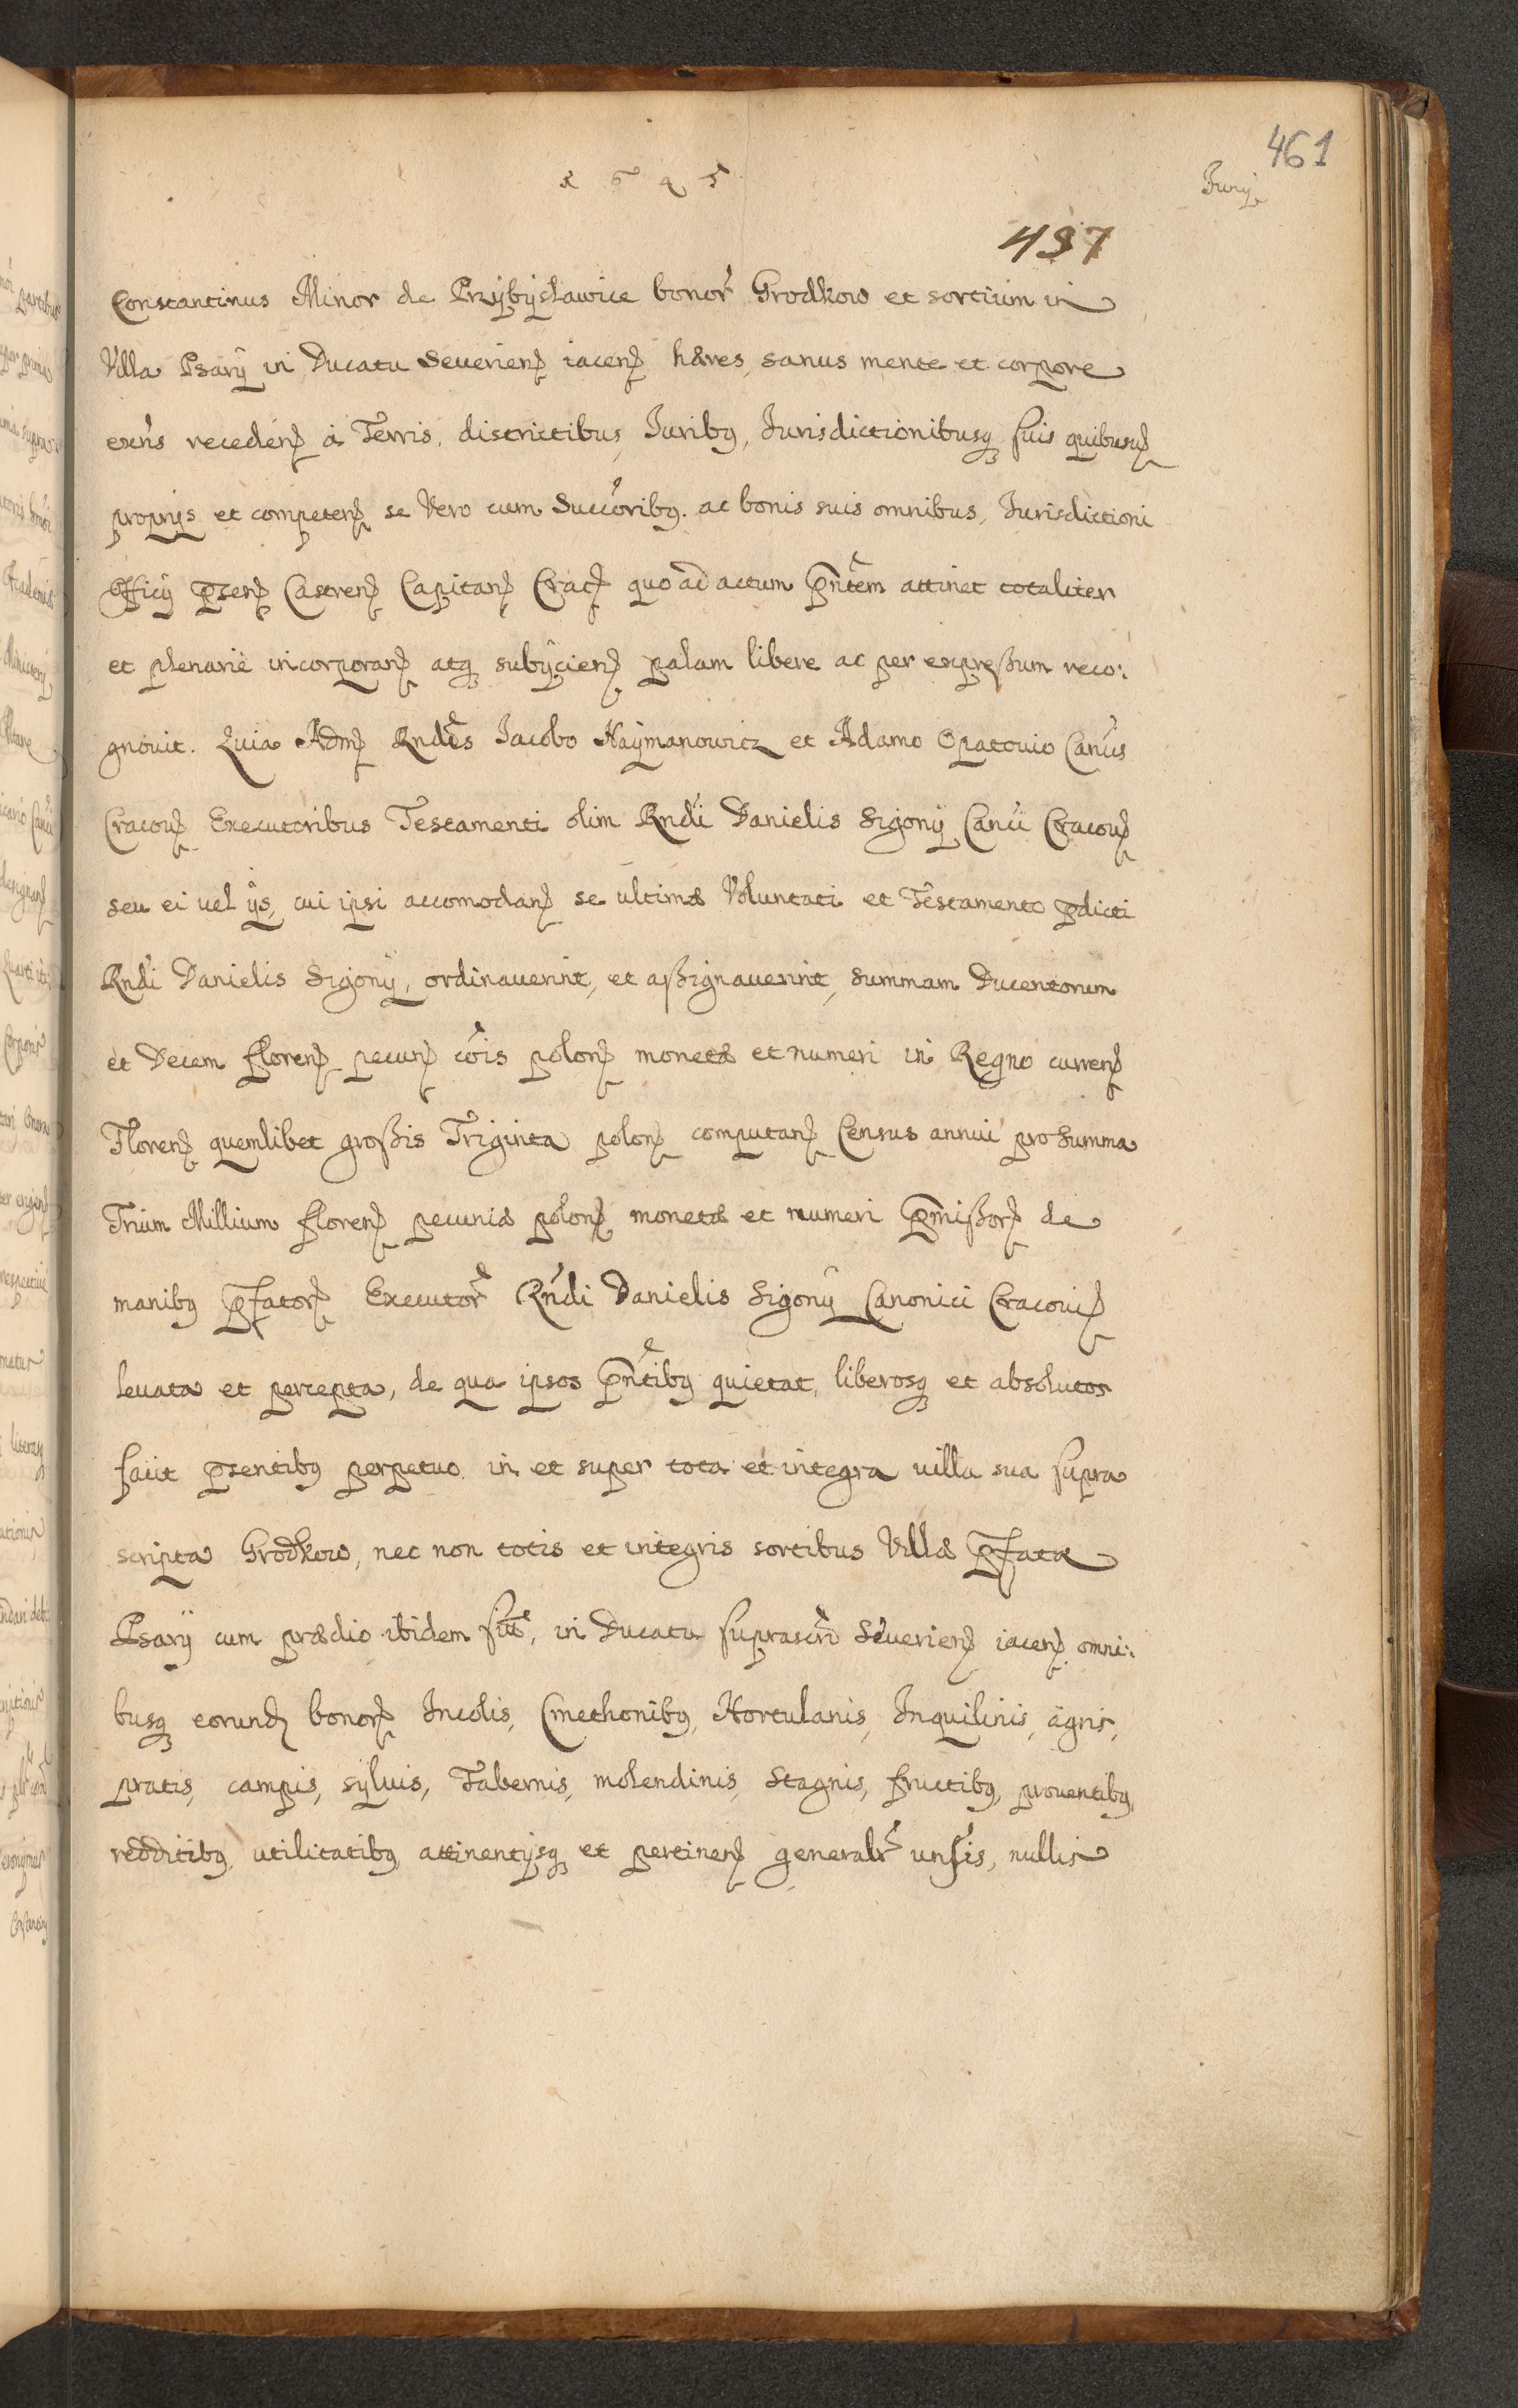 461
Jurÿ
497
Constantinus Minor de Przÿbÿsławice bonor̃ Grodkow et sortium in
Villa Psarÿ in Ducatu Seueriens̨ iacens̨ hæres, sanus mente et corpore
exñs recedens̨ à Terris, districtibus, Juribꝯ, Jurisdictionibusqꝫ suis quibusuis̨
proprÿs et competens̨ se Vero cum Succ̃oribꝯ. ac bonis suis omnibus, Jurisdictioni
Officÿ p̄sen̨ Castren̨ Capitan̨ Crac̨ quo ad actum p̄ñtem attinet totaliter
et plenarie incorporan̨ atqꝫ subÿcien̨ palam libere ac per expreßum reco:
gnouit. Quia Adm̨ Rndis̃ Jacobo Naÿmanowicz et Adamo Opatouio Can̄cis
Cracoų Executoribus Testamenti olim Rndi Danielis Sigonÿ Can̄ci Cracoų
seu ei uel ÿs, cui ipsi accomodan̨ se ultimæ Voluntati et Testamento p̄dicti
Rndi Danielis Sigonÿ, ordinauerint, et aßignauerint, summam Ducentorum
et Decem floren̨ pecun̨ c̃ois polon̨ monetæ et numeri in Regno curren̨
Floren̨ quemlibet großis Triginta polon̨ computan̨ Census annui pro Summa
Trium Millium floren̨ pecuniæ polon̨ monetæ et numeri p̄mißor̨ de
manibꝯ p̄fator̨ Executor̃ Rñdi Danielis Sigonÿ Canonici Cracouien̨
leuata et percepta, de qua ipsos p̄ñtibꝯ quietat, liberosqꝫ et absolutos
facit p̄sentibꝯ perpetuo, in et super tota et integra uilla sua supra
scripta Grodkow, nec non totis et integris sortibus Villæ p̄fatæ
Psarÿ cum prædio ibidem sit̃, in Ducatu suprascr̃ Seuerien̨ iacen̨ omni:
busqꝫ eorund̨ bonor̨ Incolis, Cmethonibꝯ, Hortulanis, Inquilinis, agris,
pratis, campis, sÿluis, Tabernis, molendinis, Stagnis, fructibꝯ, prouentibꝯ,
redditibꝯ, utilitatibꝯ, attinentÿsqꝫ et pertinen̨ generalr̃ unṽis, nullis